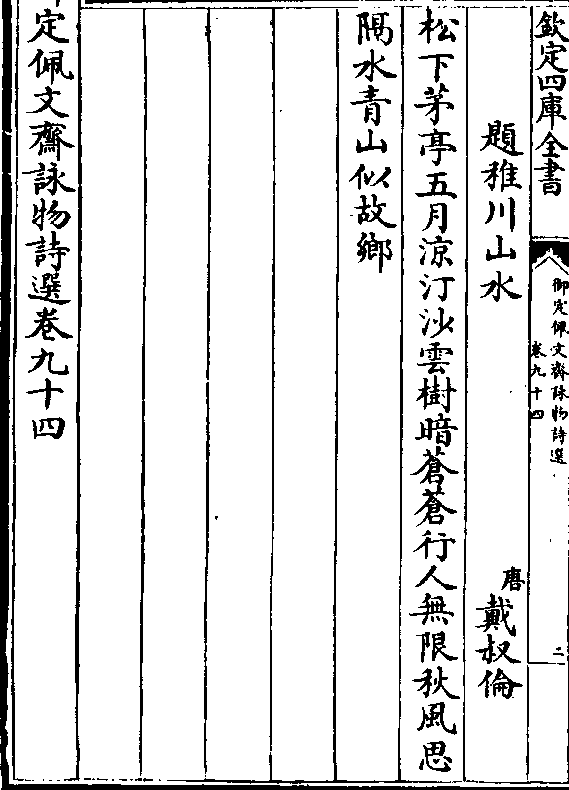 欽定四庫全書
御定佩文齋詠物詩選
卷九十四
二
題稚川山水
唐
戴叔倫
松下茅亭五月涼汀沙雲樹暗蒼蒼行人無限秋風思
隔水青山似故鄉
定佩文齋詠物詩選卷九十四